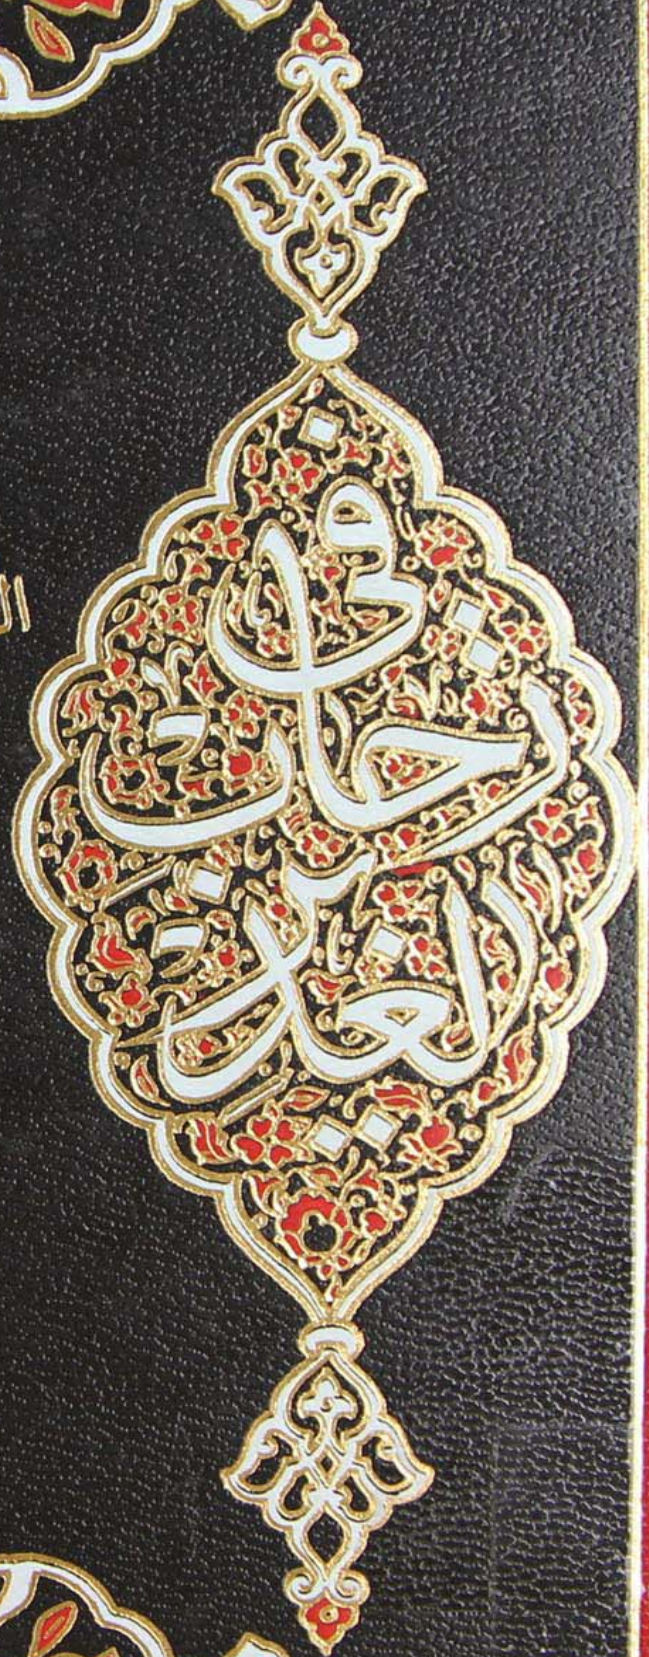 في
رحاب
الغدير